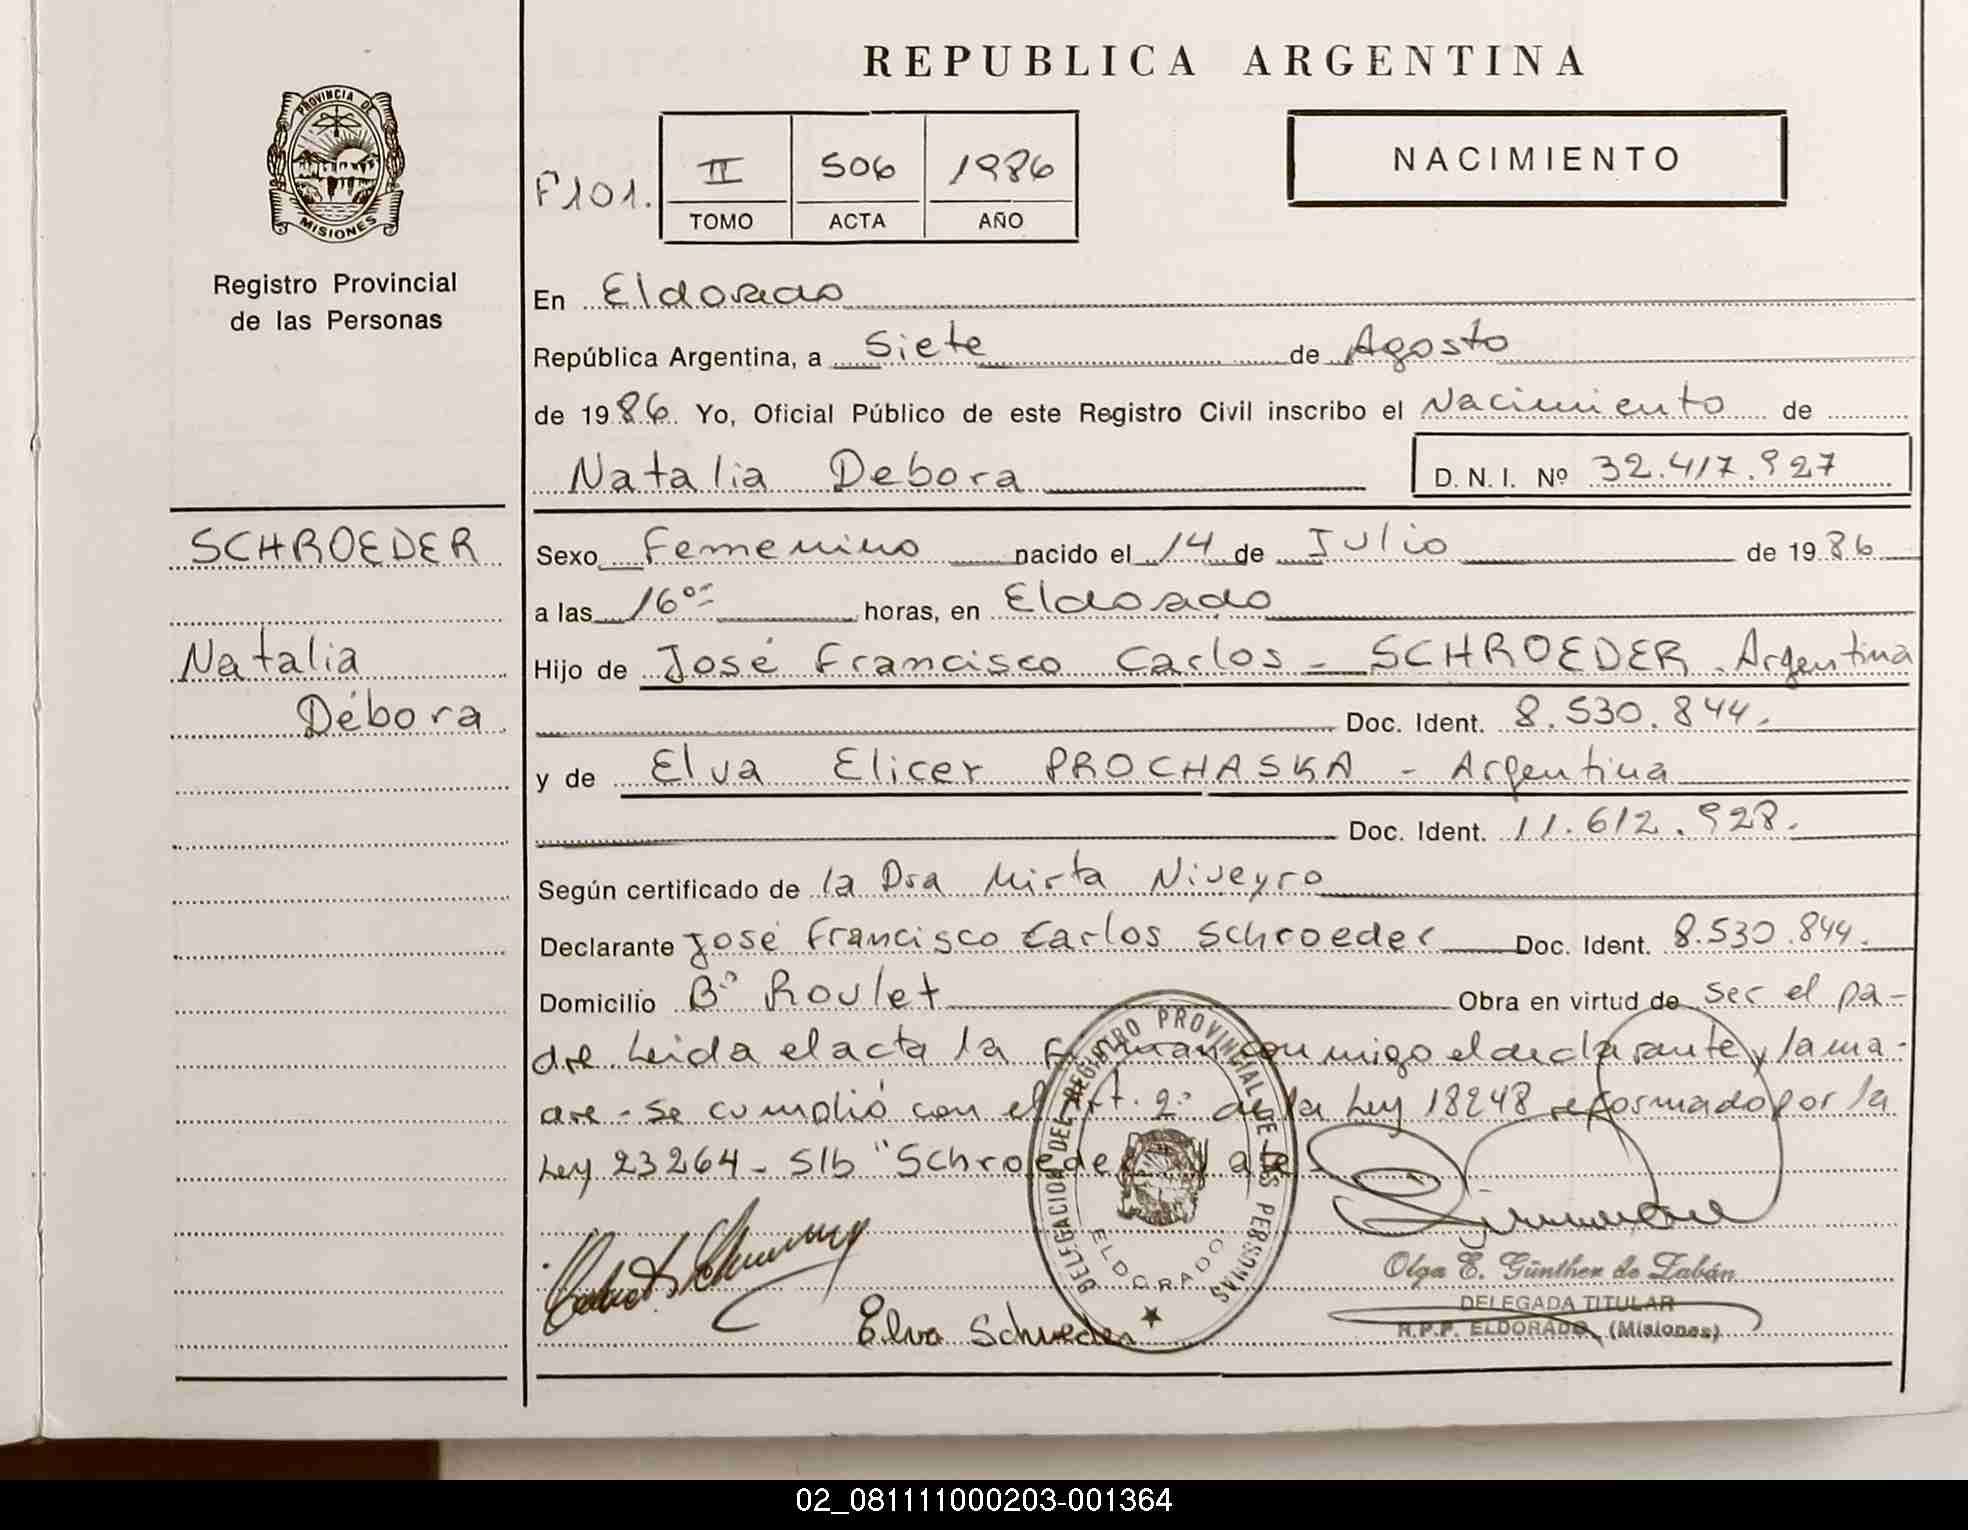 REPUBLICA ARGENTINA
PROVINCIA DE
MISIONES
Registro Provincial
de las Personas
NACIMIENTO
F101.
II 506 1986
TOMO ACTA AÑO
En Eldorado
República Argentina, a Siete de Agosto
de 1986 Yo, Oficial Público de este Registro Civil inscribo el Nacimiento de
Natalia Debora D.N.I. Nº 32.417.927
SCHROEDER
Natalia
Débora
Sexo Femenino nacido el 14 de Julio de 1986
a las 16⁰⁰ horas, en Eldorado
Hijo de José Francisco Carlos - SCHROEDER - Argentina
Doc. Ident. 8.530.844.
y de Elva Elicer PROCHASKA - Argentina
Doc. Ident. 11.612.928.
Según certificado de la Dra Mirta Niveyro
Declarante José Francisco Carlos Schroeder Doc. Ident. 8.530.844.
Domicilio Bº Roulet Obra en virtud de ser el pa-
dre. Leida el acta la firman conmigo el declarante y la ma-
dre - se cumplió con el Art. 2º de la Ley 18248 reformado por la
Ley 23264 - S/b "Schroeder" Vale -
Elva Schroeder
DELEGACION DEL REGISTRO PROVINCIAL DE LAS PERSONAS
ELDORADO
Olga E. Günther de Zabán
DELEGADA TITULAR
R.P.P. ELDORADO (Misiones)
02_081111000203-001364